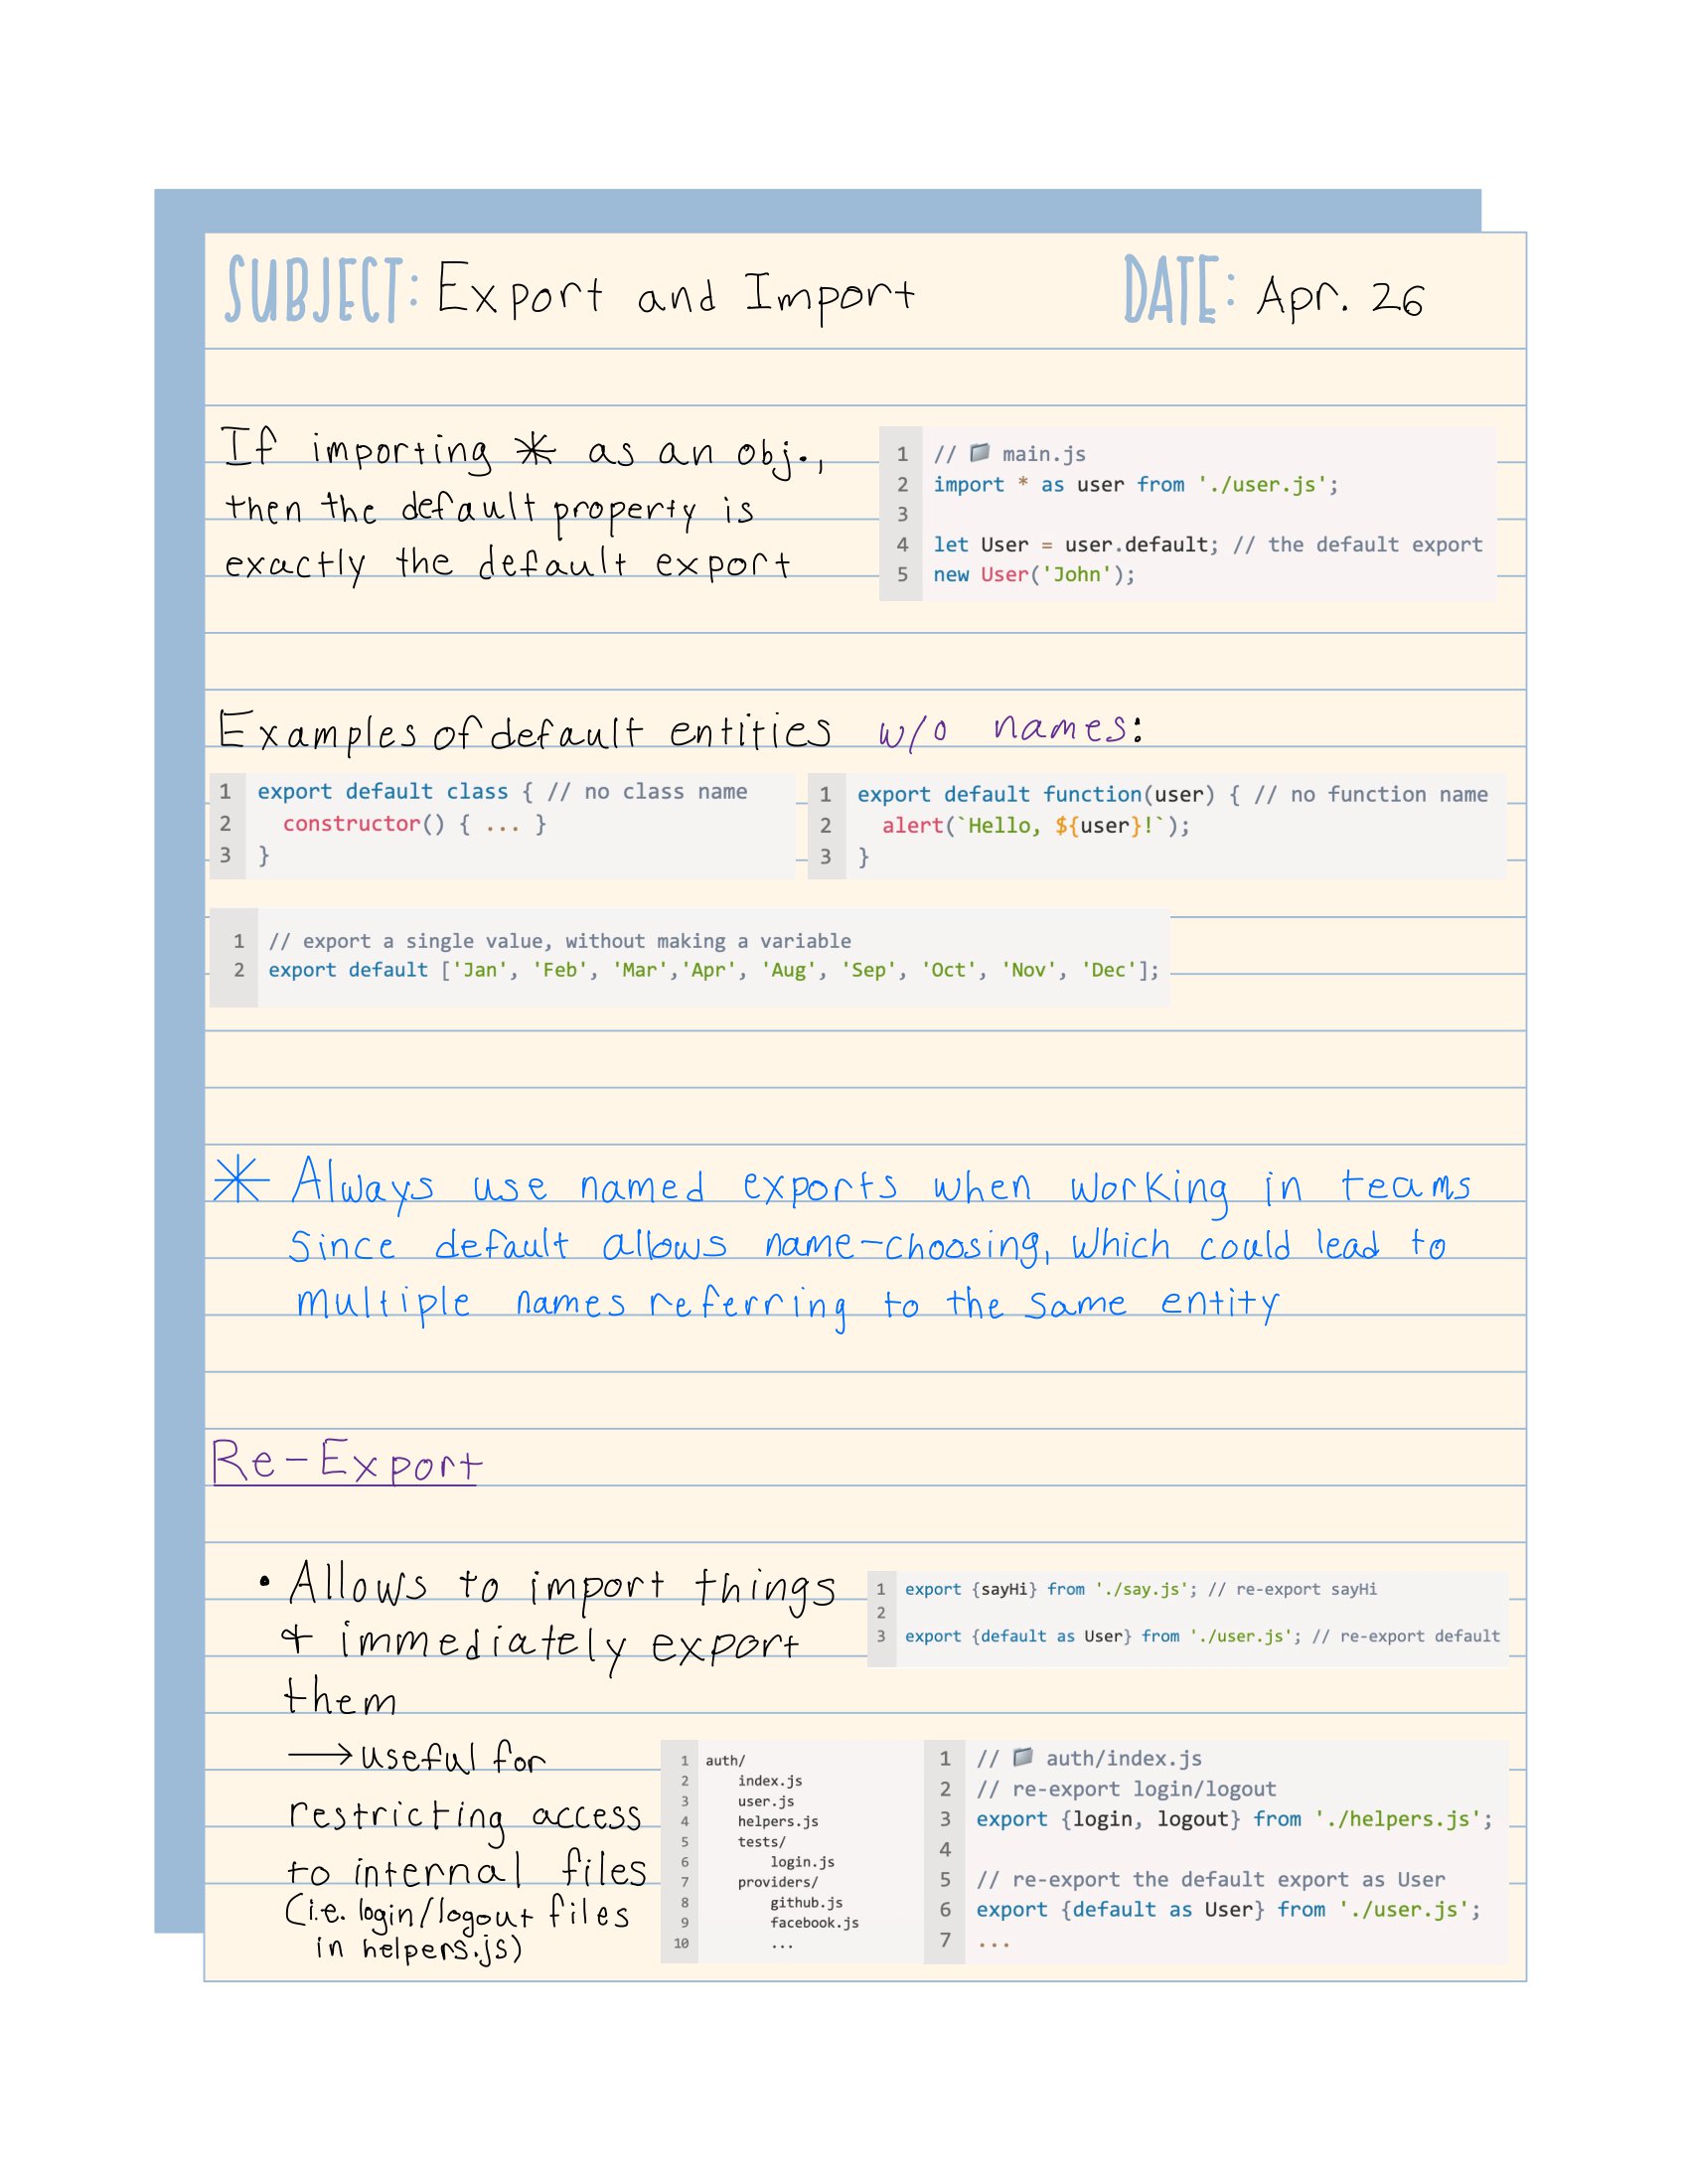 SUBJECT: Export and Import
DATE: Apr. 26
If importing * as an obj.,
then the default property is
exactly the default export
1 // 📁 main.js
2 import * as user from './user.js';
3
4 let User = user.default; // the default export
5 new User('John');
Examples of default entities w/o names:
1 export default class { // no class name
2   constructor() { ... }
3 }
1 export default function(user) { // no function name
2   alert(`Hello, ${user}!`);
3 }
1 // export a single value, without making a variable
2 export default ['Jan', 'Feb', 'Mar','Apr', 'Aug', 'Sep', 'Oct', 'Nov', 'Dec'];
* Always use named exports when working in teams
since default allows name-choosing, which could lead to
multiple names referring to the same entity
Re-Export
• Allows to import things
& immediately export
them
1 export {sayHi} from './say.js'; // re-export sayHi
2
3 export {default as User} from './user.js'; // re-export default
→ useful for
restricting access
to internal files
(i.e. login/logout files
in helpers.js)
1 auth/
2     index.js
3     user.js
4     helpers.js
5     tests/
6         login.js
7     providers/
8         github.js
9         facebook.js
10         ...
1 // 📁 auth/index.js
2 // re-export login/logout
3 export {login, logout} from './helpers.js';
4
5 // re-export the default export as User
6 export {default as User} from './user.js';
7 ...